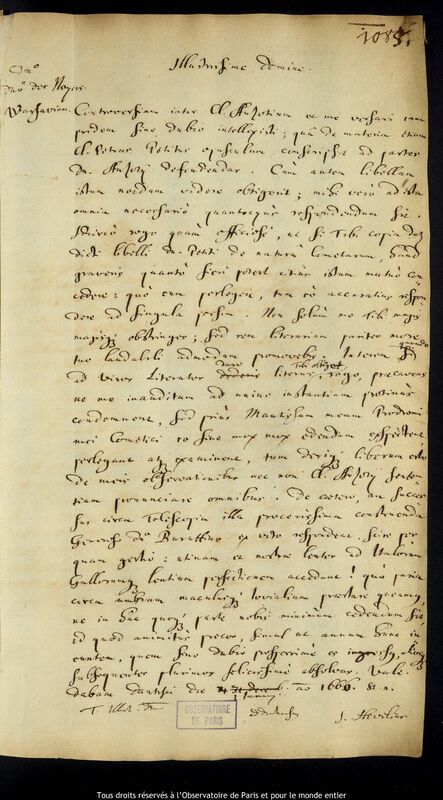 1085.
Illustrissime domine.
Dno
Dno des Noyers
Warsaviam.
Controversiam inter Cl. Auzotium ac me versari jam
pridem sine dubio intellexisti; qua de materia etiam
Cl. Petrus Petitus opusculum conscripsit ad partes
Dn. Auzotij defendendas. Cum autem libellum
istum nondum videre obtigerit; mihi vero ad ista
omnia necessario quantocyus respondendum sit.
Idcirco rogo quam officiose, ut si Tibi copia
dicti libelli Dn. Petiti de natura Cometarum, haud
graveris quanto fieri potest citius istum mecum con
cedere: quo eum perlegere, tum eo accuratius respon
dere ad singula possim. Non solum me Tibi magis
magisque obstringes; sed rem literariam pariter more
tuo laudabili admodum promovebis. Interim
ad Viros Literatos literis, rogo, precaveas
ne me inauditum ad unius instantiam protinus
condemnent, sed prius Mantissam meam Prodromi
mei Cometici eo sine mox mox edendam exspectent,
perlegant atque examinent, tum denique liberum esto
de meis observationibus nec non Cl. Auzotij senten
tiam pronunciare omnibus. De caetero, an succes
sus circa Telescopia illa procerissima construenda
Generoso Dn. Burattino ex voto respondeat, scire per
quam gestio: utinam et nostrae lentes ad Italorum
Gallorumque lentium perfectionem accedant! quo paria
circa umbram maculasque Joviales praestare queamus,
ne in hac quoque parte nobis minimum cedendum sit,
id quod animitus precor, simul ut annum hunc in
euntem, quem sine dubio prosperrime es ingressus, aliosque
subsequentes plurimos felicissime absolvas. Vale.
Dabam Dantisci die
Januarij
ao 1666. st. n.
T. Illust. Dn.
J. Hevelius
OBSERVATOIRE
DE PARIS
Tous droits réservés à l'Observatoire de Paris et pour le monde entier